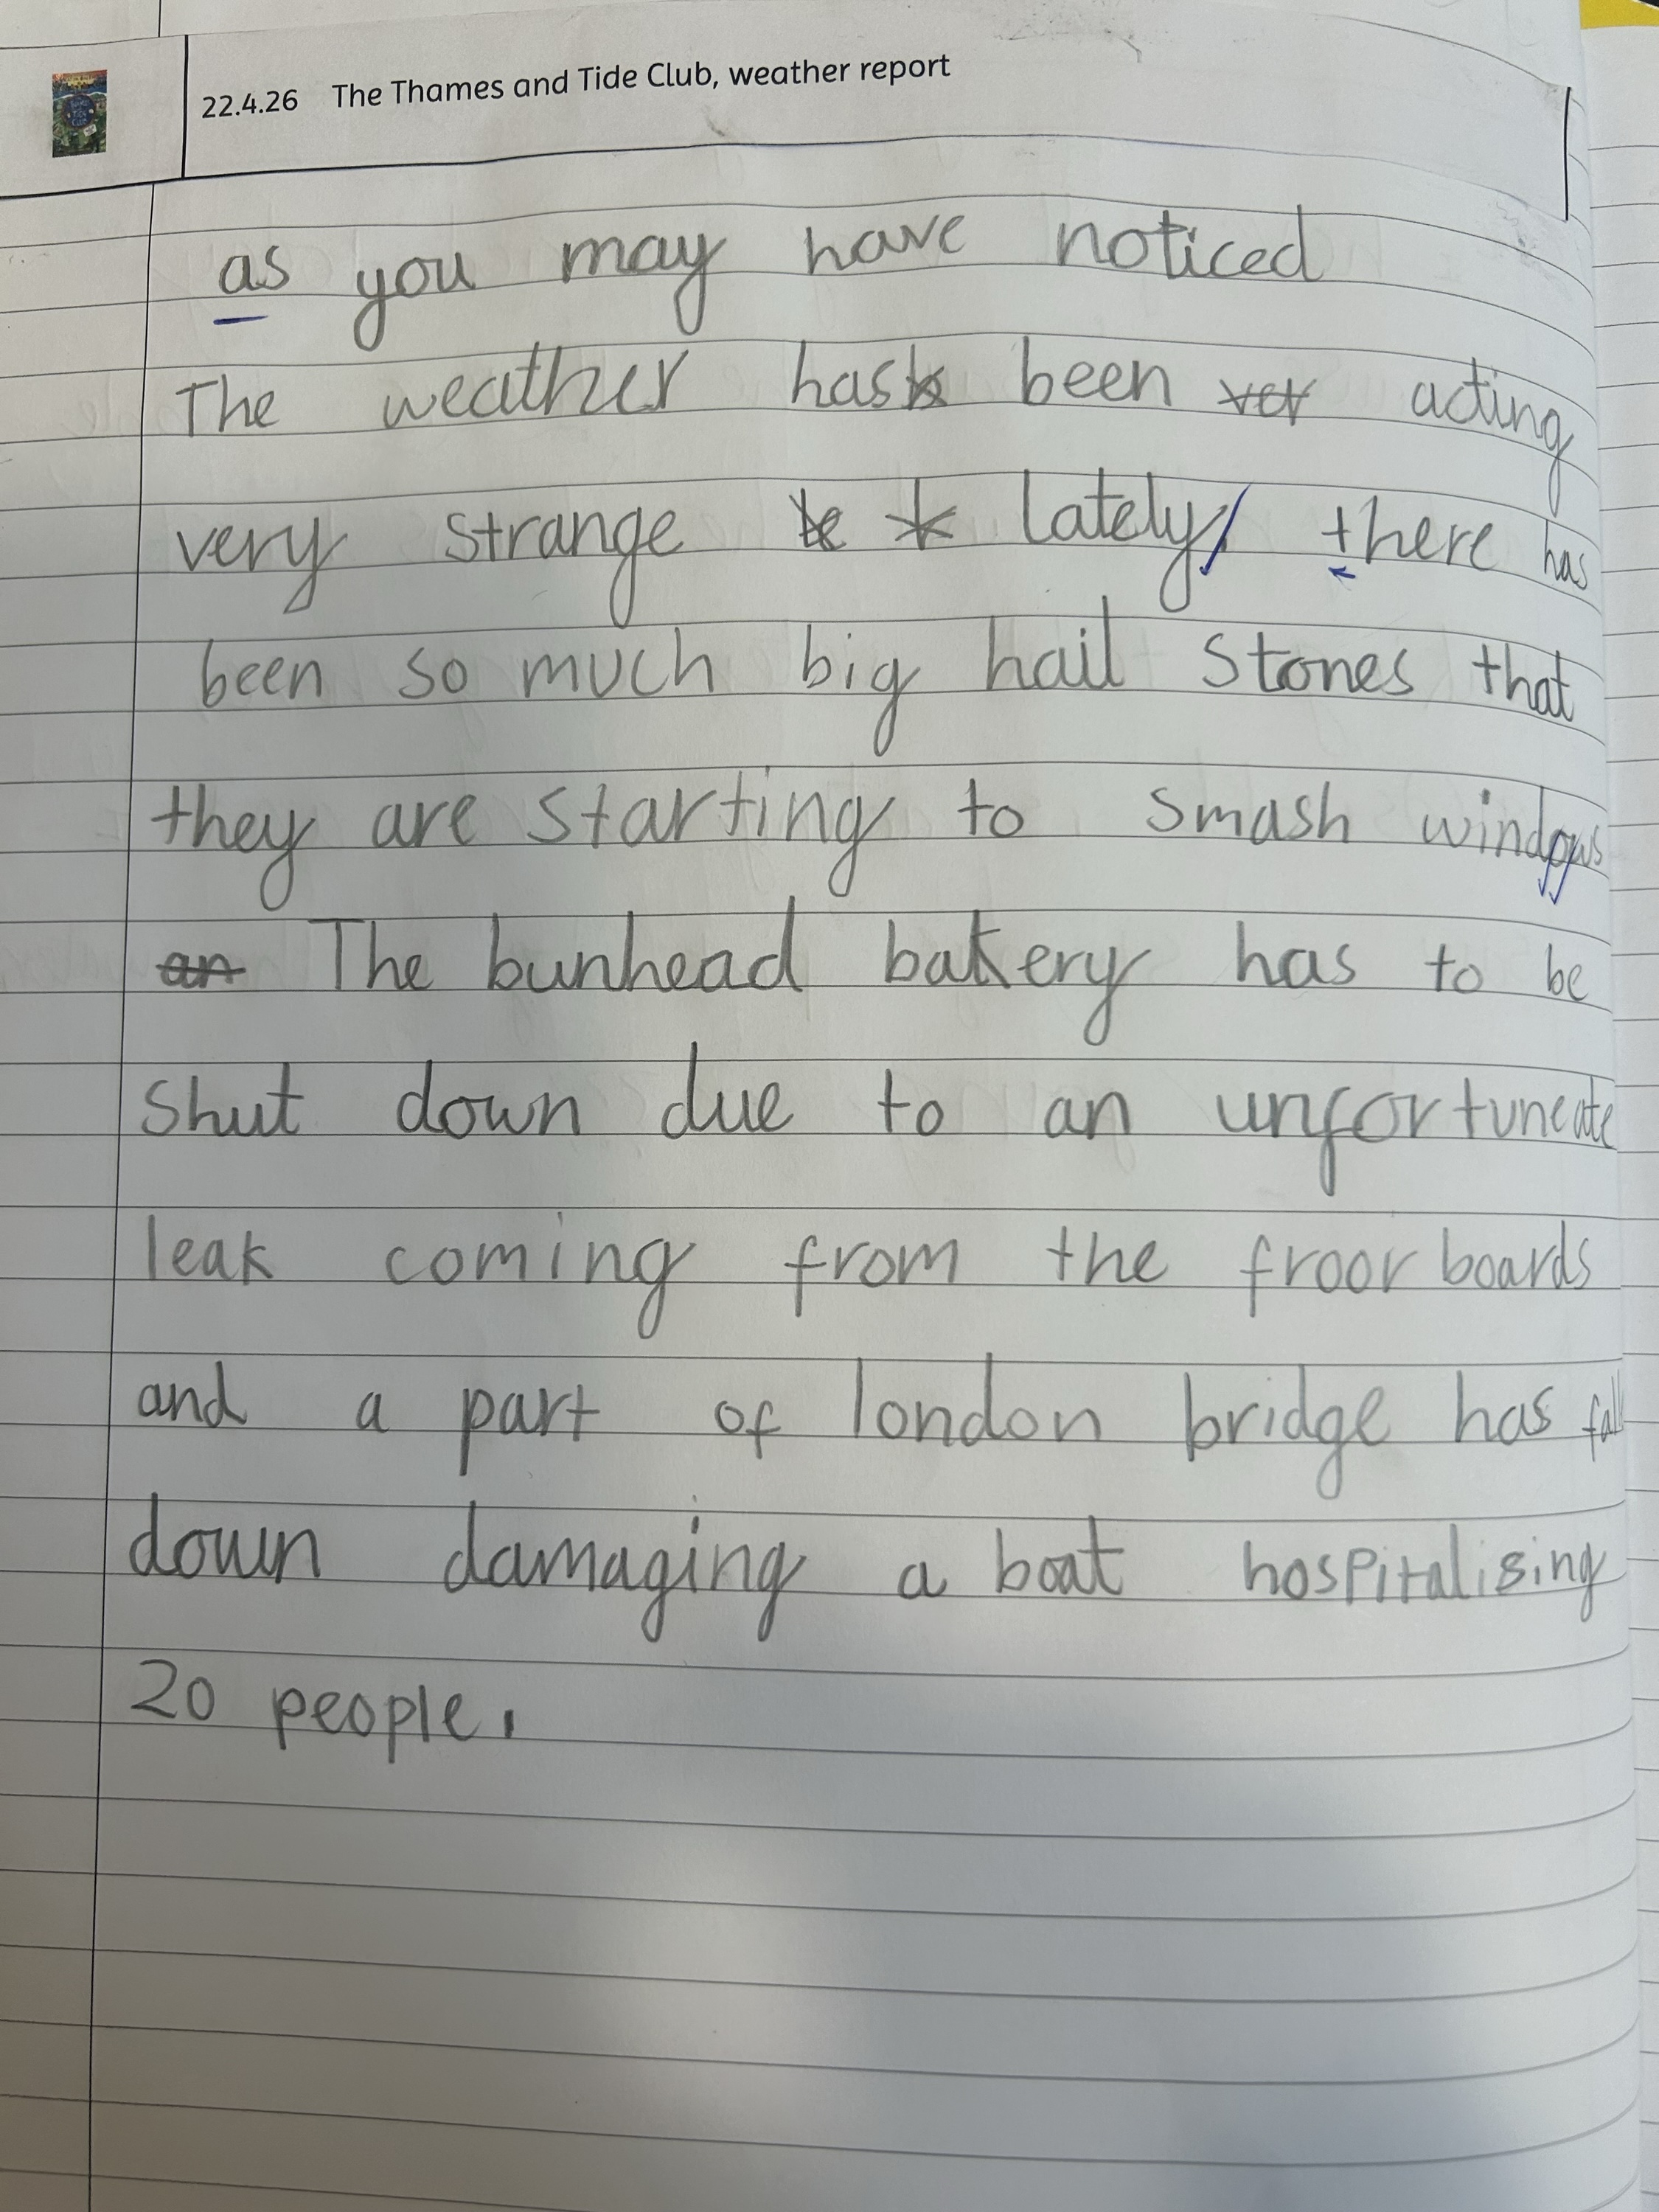 22.4.26 The Thames and Tide Club, weather report
as you may have noticed
The weather has been ver acting
very strange lately, there has
been so much big hail stones that
they are starting to smash windows
an The bunhead bakery has to be
shut down due to an unfortuneate
leak coming from the froor boards
and a part of london bridge has fall
down damaging a boat hospitalising
20 people.